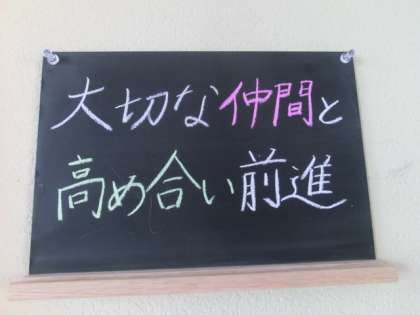 大切な仲間と
高め合い前進